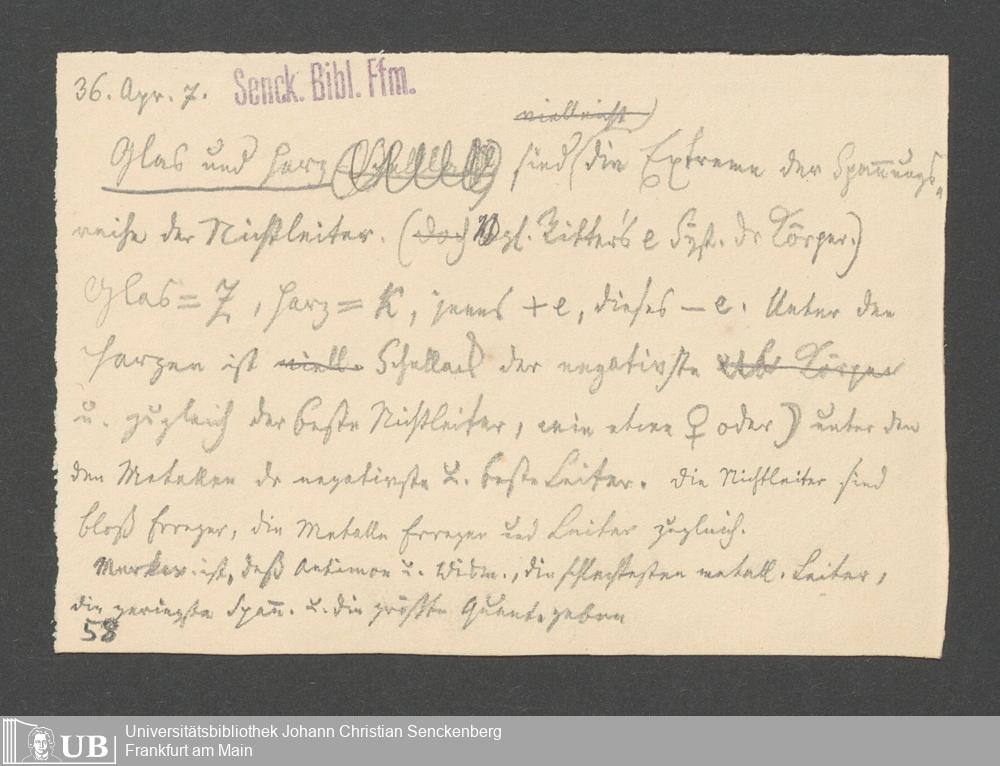 36. Apr. 7. Senck. Bibl. Ffm.
vielleicht
Glas und Harz (Schellack) sind die Extreme der Span̄ungs-
reihe der Nichtleiter. (doch Vgl. Ritter's e Syst. dr Körper.)
Glas = Z, Harz = K, jenes + e, dieses – e. Unter den
Harzen ist viell. Schellack der negativste Körper
u. zugleich der beste Nichtleiter, wie etwa ♀ oder ☽ unter den
den Metallen dr negativste u. beste Leiter. Die Nichtleiter sind
bloß Erreger, die Metalle Erreger und Leiter zugleich.
Merkw. ist, daß Antimon u. Wism., die schlechtesten metall. Leiter,
die geringste Span̄. u. die größte Quant. geben
58
Universitätsbibliothek Johann Christian Senckenberg
Frankfurt am Main
UB